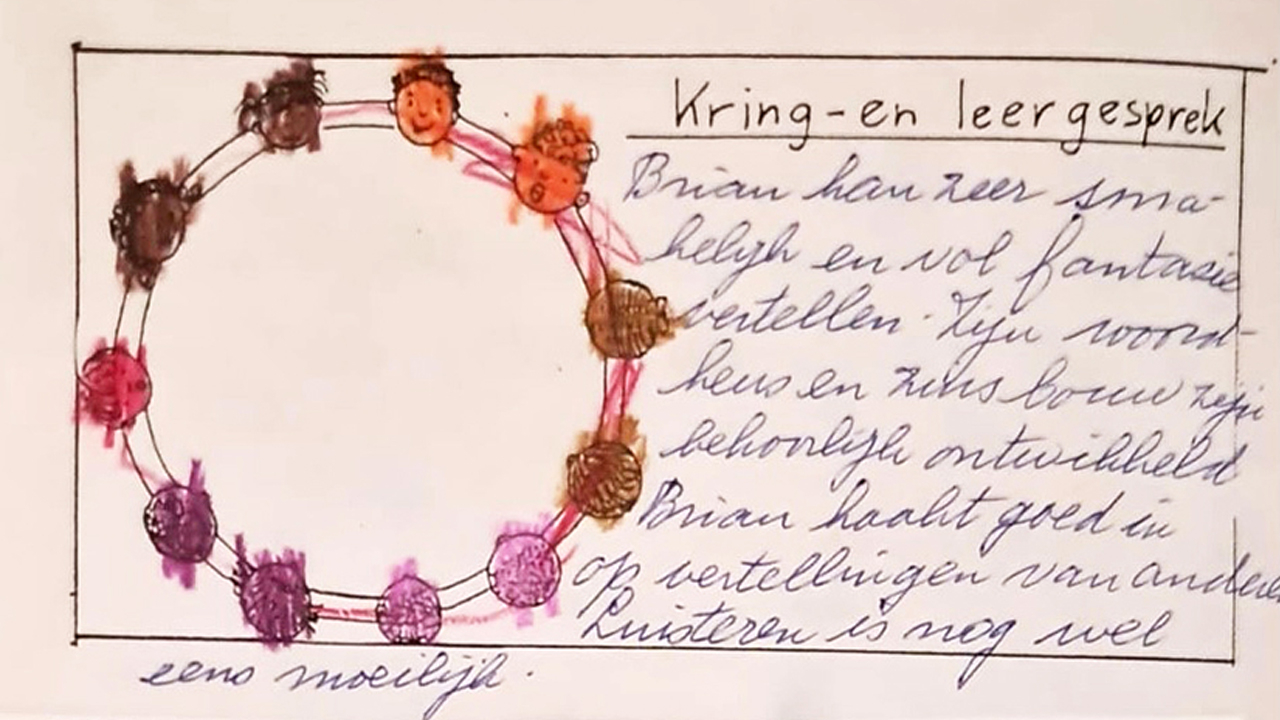 Kring-en leergesprek
Brian kan zeer sma-
kelijk en vol fantasie
vertellen. Zijn woord-
keus en zins bouw zijn
behoorlijk ontwikkeld
Brian haakt goed in
op vertellingen van anderen
Luisteren is nog wel
eens moeilijk.